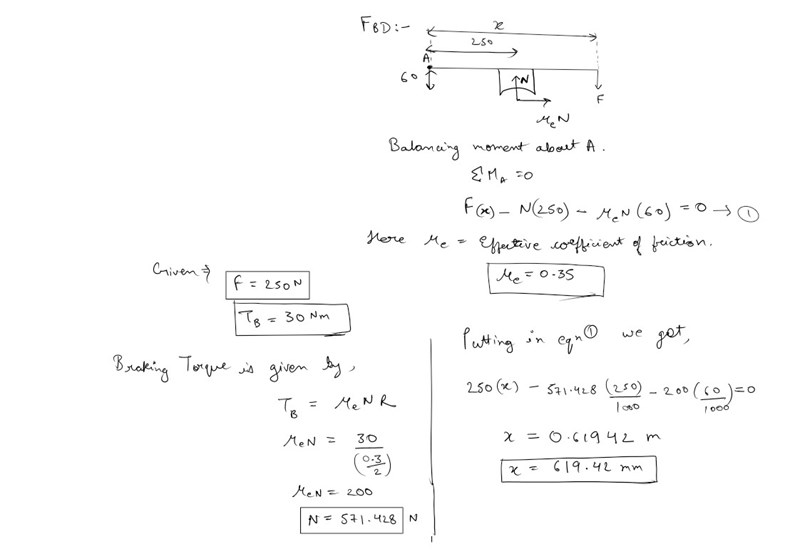 FBD:-
x
250
A
60
N
F
μeN
Balancing moment about A.
ΣMA = 0
F(x) - N(250) - μeN(60) = 0 → ①
Here μe = Effective coefficient of friction.
μe = 0.35
Given ⇒
F = 250 N
TB = 30 Nm
Braking Torque is given by,
TB = μeNR
μeN = 30/(0.3/2)
μeN = 200
N = 571.428 N
Putting in eqn① we got,
250(x) - 571.428 (250/1000) - 200 (60/1000) = 0
x = 0.61942 m
x = 619.42 mm